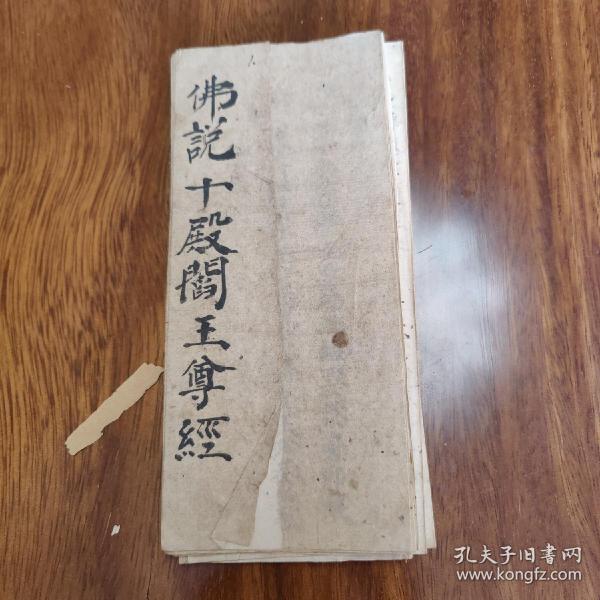 佛說十殿閻王尊經
孔夫子旧书网
www.kongfz.com